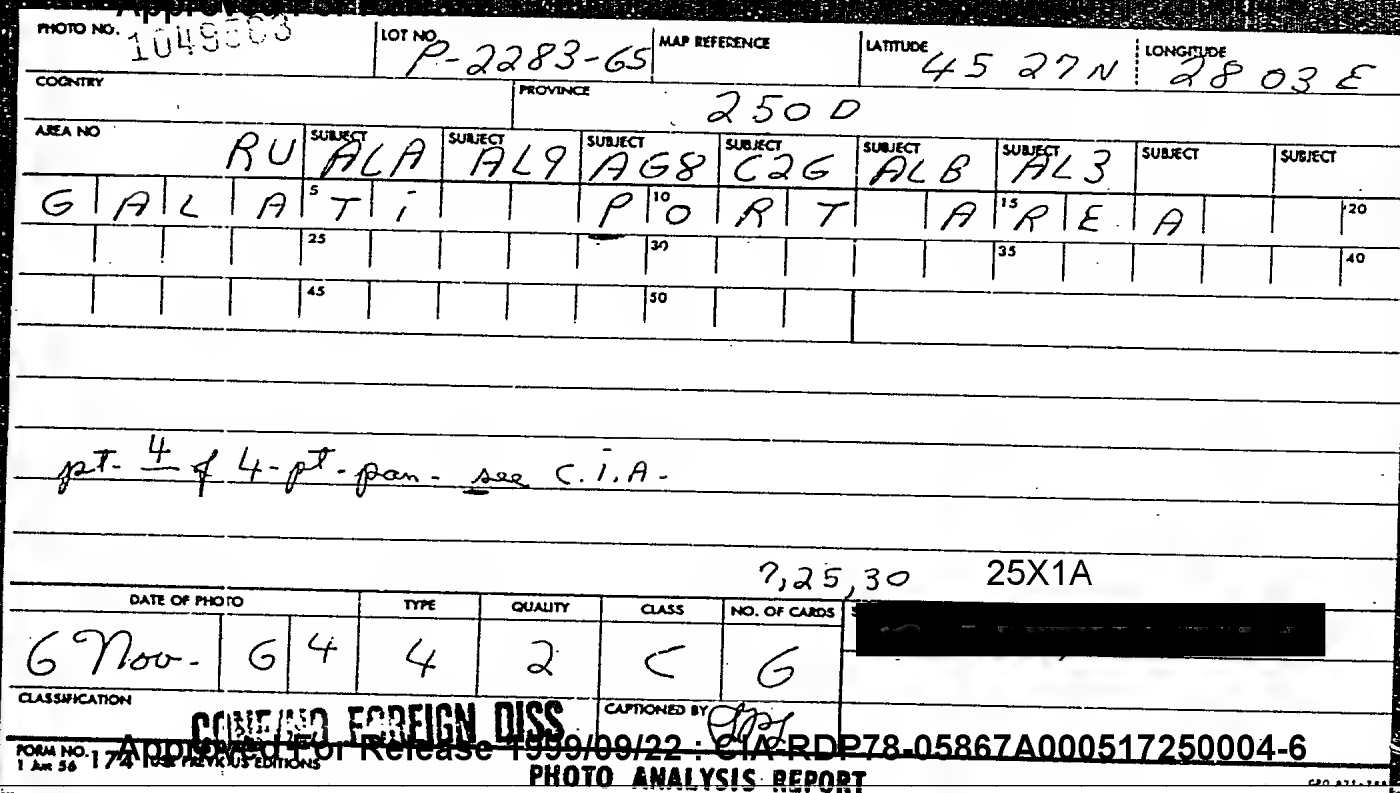 PHOTO NO. LOT NO. P-2283-65 MAP REFERENCE LATITUDE 45 27 N LONGITUDE 28 03 E
COUNTRY PROVINCE 250 D
AREA NO RU SUBJECT ALA SUBJECT AL9 SUBJECT AG8 SUBJECT C2G SUBJECT ALB SUBJECT AL3 SUBJECT SUBJECT
G A L A 5 T i P 10 O R T A 15 R E A 20
25 30 35 40
45 50
pt- 4 of 4-pt-pan- see C.i.A-
7,25,30 25X1A
DATE OF PHOTO TYPE QUALITY CLASS NO. OF CARDS
6 Nov. 6 4 4 2 C 6
CLASSIFICATION CONF/NO FOREIGN DISS CAPTIONED BY
FORM NO. 174 USE PREVIOUS EDITIONS
1 Jun 56
Approved For Release 1999/09/22 : CIA-RDP78-05867A000517250004-6
PHOTO ANALYSIS REPORT